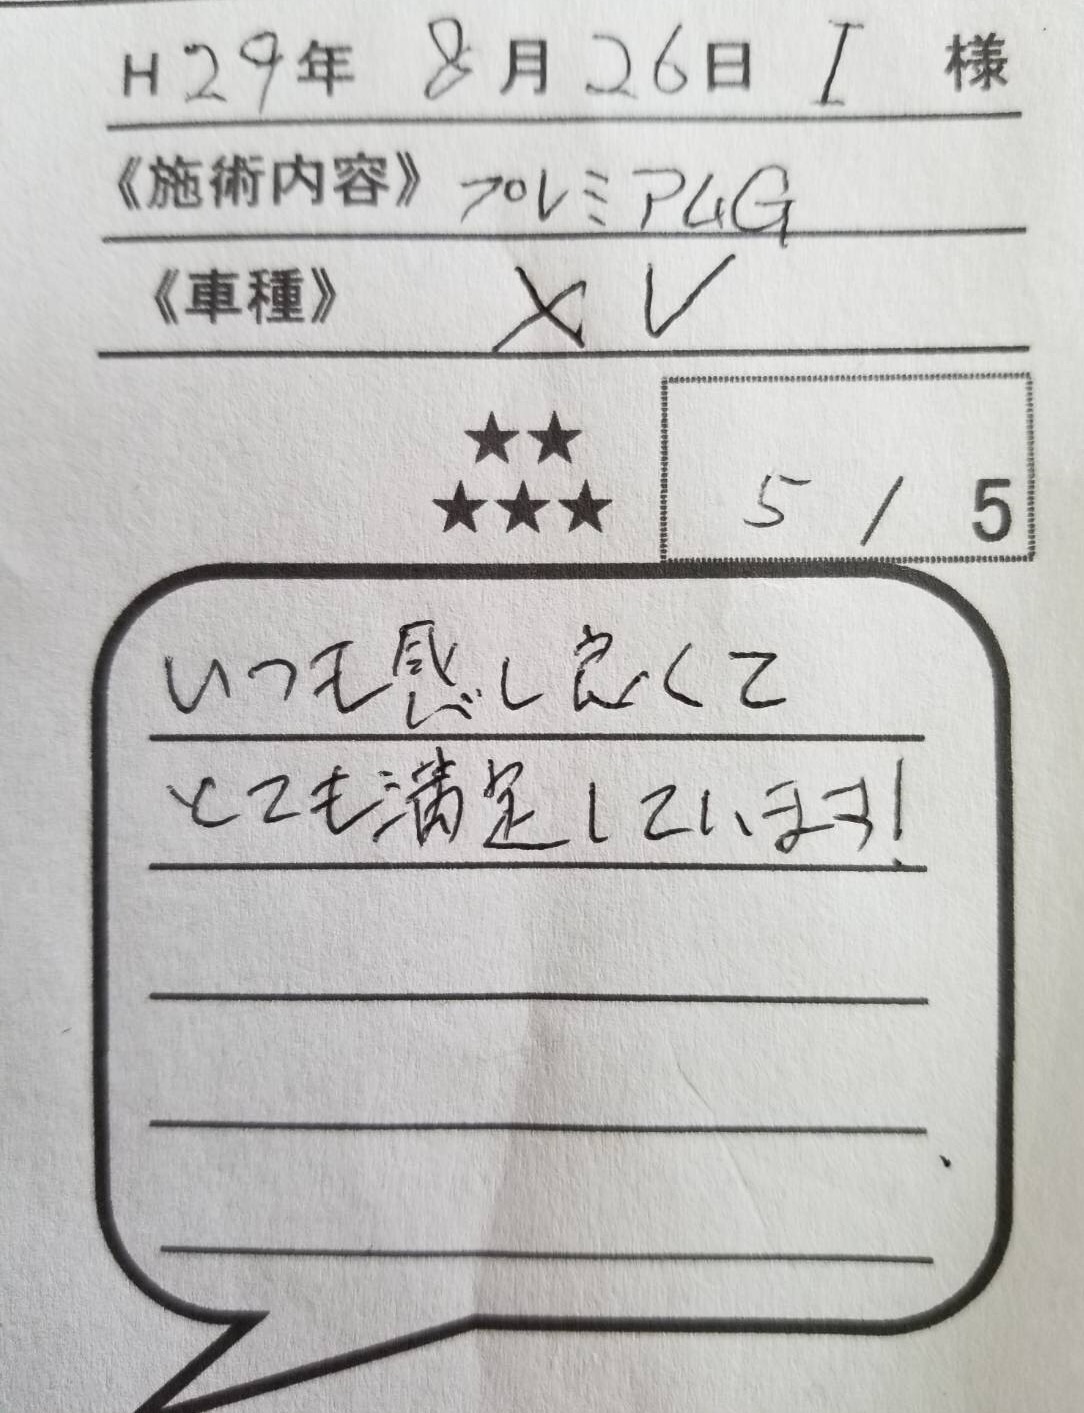 H29年 8月26日 I 様
《施術内容》 プレミアムG
《車種》 XV
★★
★★★ 5/5
いつも感じ良くて
とても満足しています!